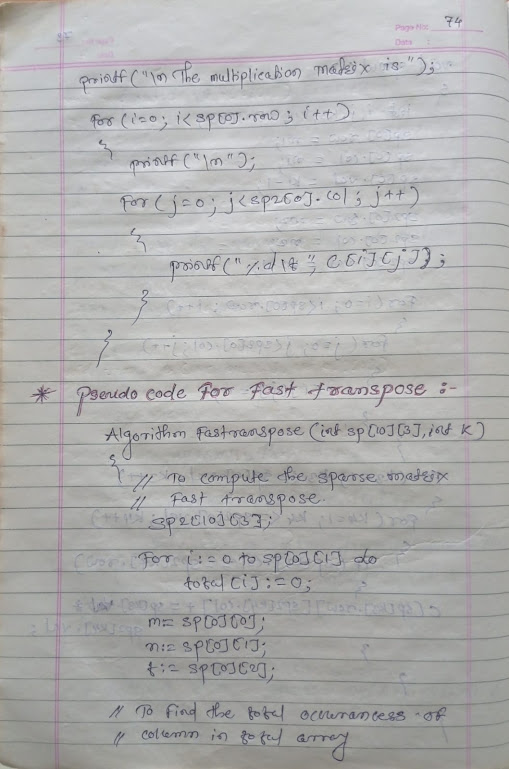 Page No. 74
Date :
printf("\n The multiplication matrix is:");
for (i=0; i<sp[0].row; i++)
{
printf("\n");
for (j=0; j<sp2[0].col; j++)
{
printf("%d\t", C[i][j]);
}
}
* Pseudo code for fast transpose :-
Algorithm Fastranspose (int sp[10][3], int K)
{
// To compute the sparse matrix
// Fast transpose.
sp2[10][3];
For i:=0 to sp[0][1] do
total[i]:=0;
m= sp[0][0];
n:= sp[0][1];
t:= sp[0][2];
// To find the total occurancess of
// column in total array